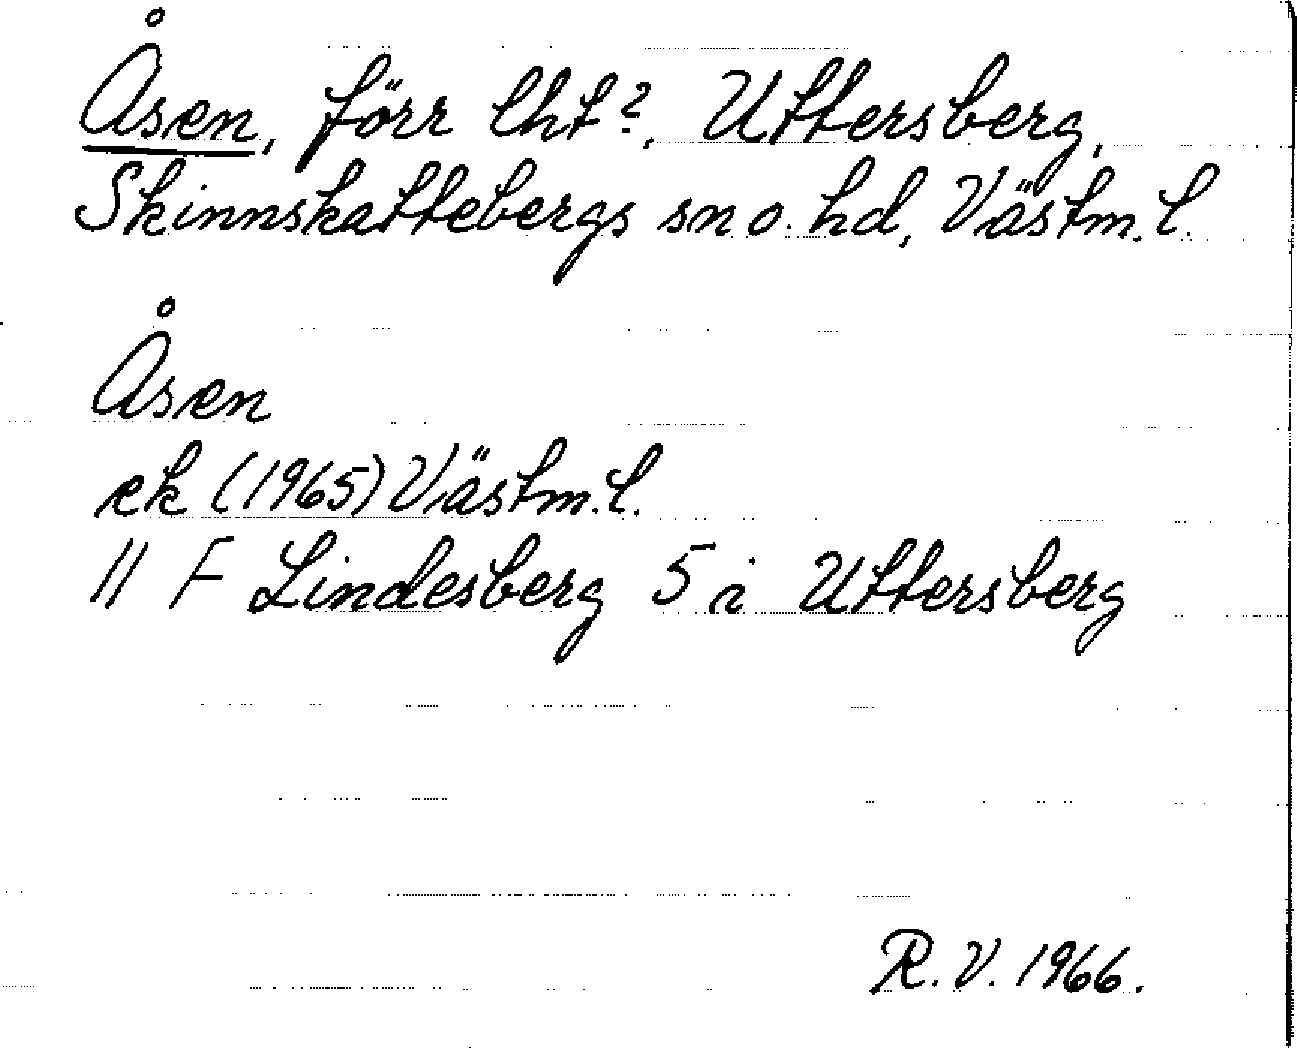 Åsen, förr lht?, Uttersberg,
Skinnskattebergs sn o. hd, Västm. l.
Åsen
ek (1965) Västm. l.
11 F Lindesberg 5 i Uttersberg
R. V. 1966.